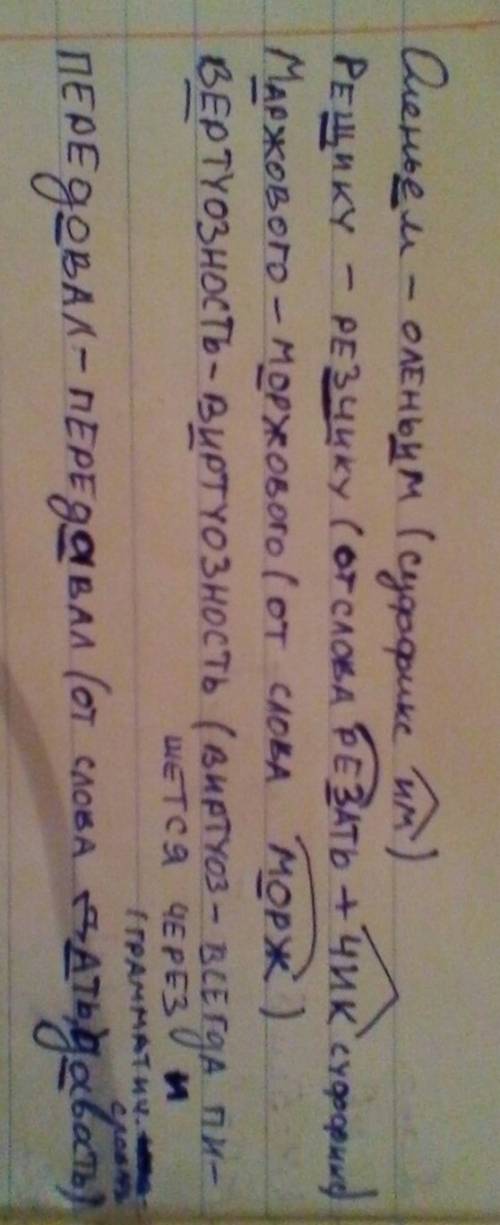 Оленьем - оленьим (суффикс им)
РЕЩИКУ - РЕЗЧИКУ (ОТ СЛОВА РЕЗАТЬ + ЧИК СУФФИКС)
МАРЖОВОГО - МОРЖОВОГО (ОТ СЛОВА МОРЖ)
ВЕРТУОЗНОСТЬ - ВИРТУОЗНОСТЬ (ВИРТУОЗ - ВСЕГДА ПИ-
ШЕТСЯ ЧЕРЕЗ И
(ГРАММАТИЧ.
ПЕРЕДОВАЛ - ПЕРЕДАВАЛ (ОТ СЛОВА ДАТЬ, давость)